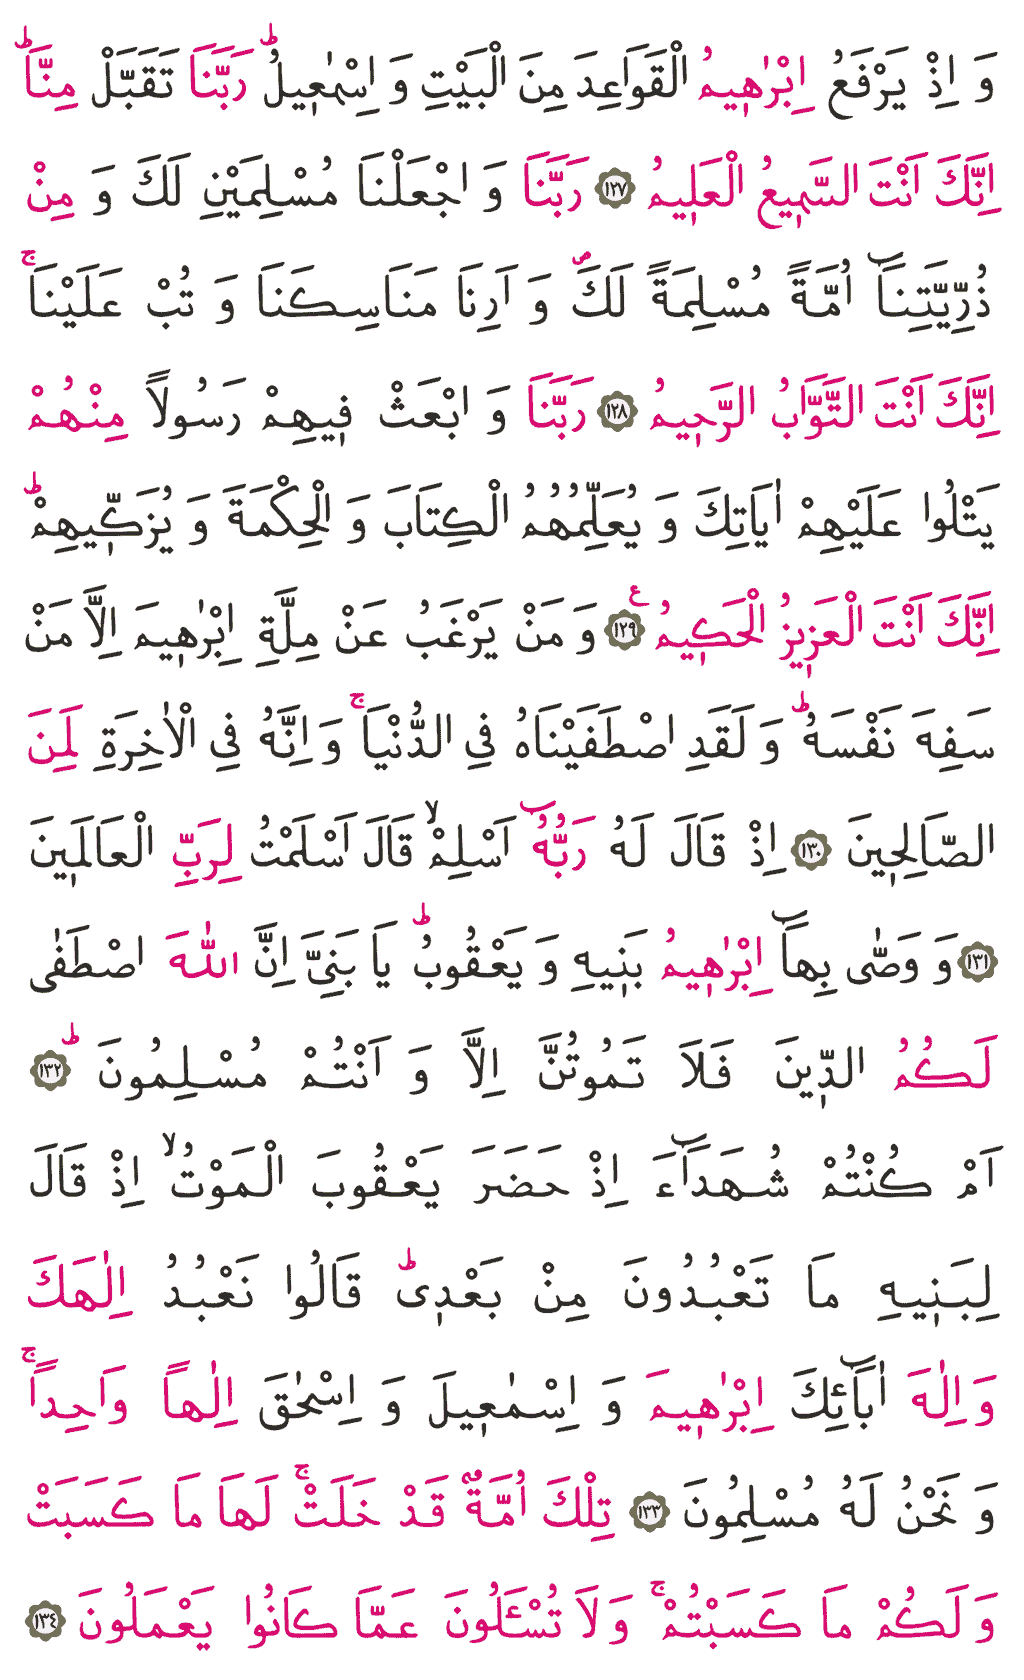 وَ اِذْ يَرْفَعُ اِبْرٰهٖيمُ الْقَوَاعِدَ مِنَ الْبَيْتِ وَ اِسْمٰعٖيلُؕ رَبَّنَا تَقَبَّلْ مِنَّاؕ
اِنَّكَ اَنْتَ السَّمٖيعُ الْعَلٖيمُ ﴿١٢٧﴾ رَبَّنَا وَ اجْعَلْنَا مُسْلِمَيْنِ لَكَ وَ مِنْ
ذُرِّيَّتِنَٓا اُمَّةً مُسْلِمَةً لَكَࣕ وَ اَرِنَا مَنَاسِكَنَا وَ تُبْ عَلَيْنَاۚ
اِنَّكَ اَنْتَ التَّوَّابُ الرَّحٖيمُ ﴿١٢٨﴾ رَبَّنَا وَ ابْعَثْ فٖيهِمْ رَسُولًا مِنْهُمْ
يَتْلُوا عَلَيْهِمْ اٰيَاتِكَ وَ يُعَلِّمُهُمُ الْكِتَابَ وَ الْحِكْمَةَ وَ يُزَكّٖيهِمْؕ
اِنَّكَ اَنْتَ الْعَزٖيزُ الْحَكٖيمُ ع ﴿١٢٩﴾ وَ مَنْ يَرْغَبُ عَنْ مِلَّةِ اِبْرٰهٖيمَ اِلَّا مَنْ
سَفِهَ نَفْسَهُؕ وَ لَقَدِ اصْطَفَيْنَاهُ فِى الدُّنْيَاۚ وَ اِنَّهُ فِى الْاٰخِرَةِ لَمِنَ
الصَّالِحٖينَ ﴿١٣٠﴾ اِذْ قَالَ لَهُ رَبُّهُٓ اَسْلِمْۙ قَالَ اَسْلَمْتُ لِرَبِّ الْعَالَمٖينَ
﴿١٣١﴾ وَ وَصّٰى بِهَٓا اِبْرٰهٖيمُ بَنٖيهِ وَ يَعْقُوبُؕ يَا بَنِىَّ اِنَّ اللّٰهَ اصْطَفٰى
لَكُمُ الدّٖينَ فَلَا تَمُوتُنَّ اِلَّا وَ اَنْتُمْ مُسْلِمُونَؕ ﴿١٣٢﴾
اَمْ كُنْتُمْ شُهَدَٓاءَ اِذْ حَضَرَ يَعْقُوبَ الْمَوْتُۙ اِذْ قَالَ
لِبَنٖيهِ مَا تَعْبُدُونَ مِنْ بَعْدٖىؕ قَالُوا نَعْبُدُ اِلٰهَكَ
وَ اِلٰهَ اٰبَٓائِكَ اِبْرٰهٖيمَ وَ اِسْمٰعٖيلَ وَ اِسْحٰقَ اِلٰهًا وَاحِدًاۚ
وَ نَحْنُ لَهُ مُسْلِمُونَ ﴿١٣٣﴾ تِلْكَ اُمَّةٌ قَدْ خَلَتْۚ لَهَا مَا كَسَبَتْ
وَ لَكُمْ مَا كَسَبْتُمْۚ وَ لَا تُسْـَٔلُونَ عَمَّا كَانُوا يَعْمَلُونَ ﴿١٣٤﴾